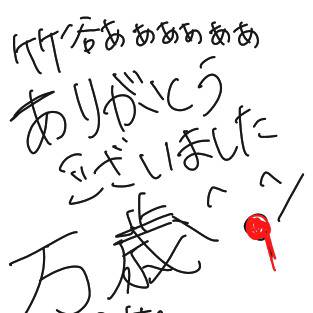 竹谷ああああああ
ありがとう
ございました
万歳